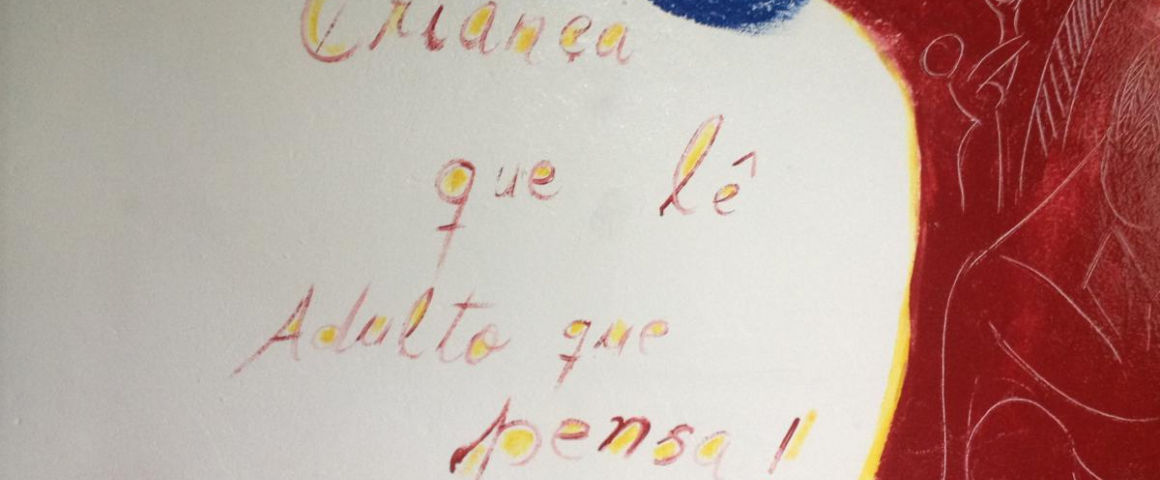 Criança
que lê
Adulto que
pensa!